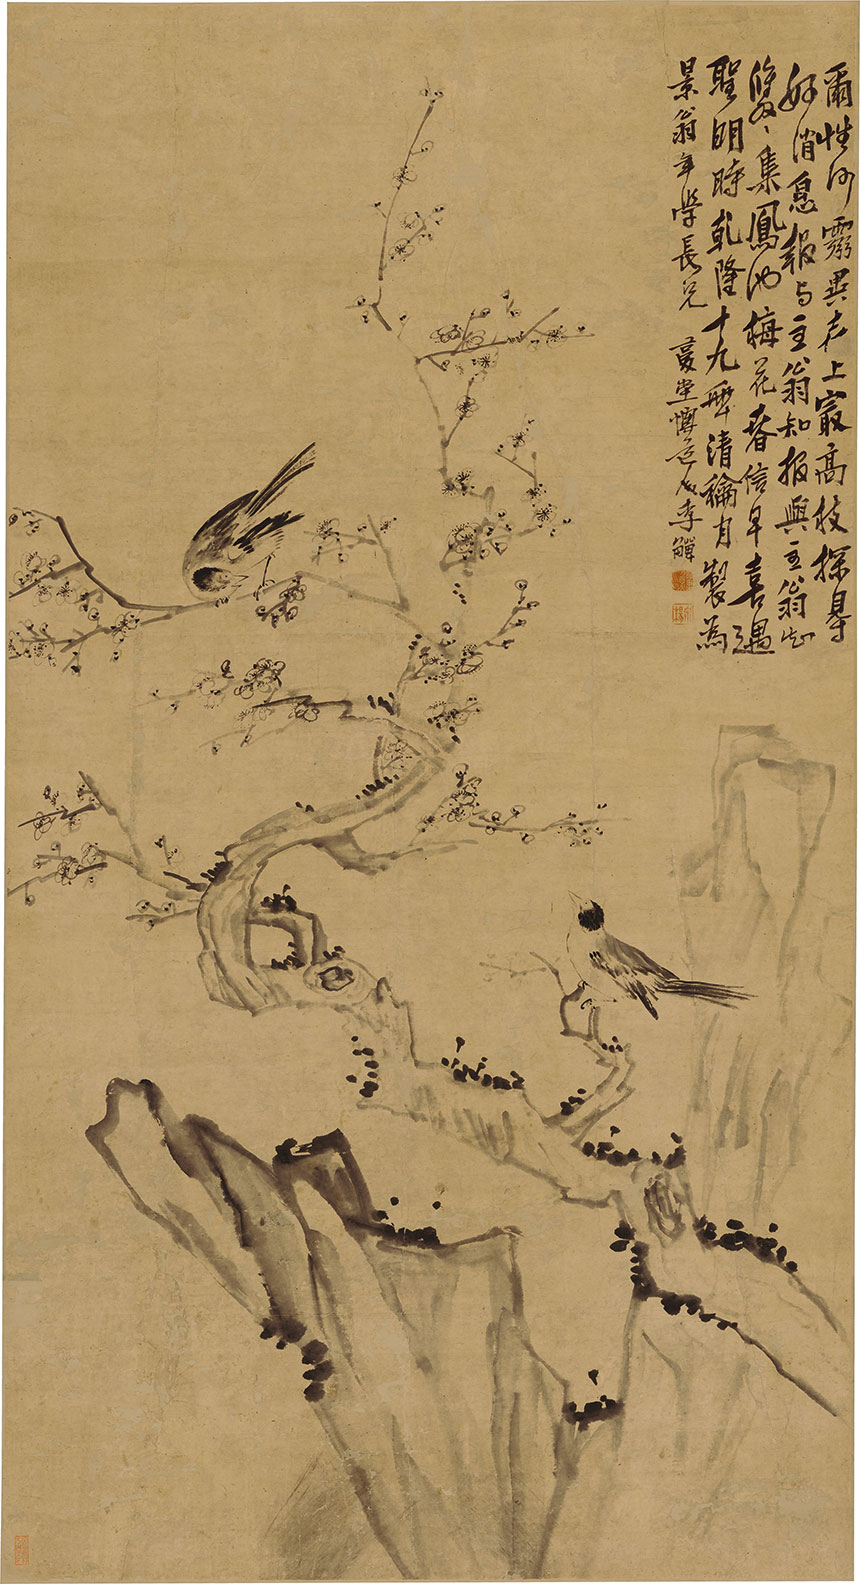 爾性何靈異上最高枝探尋
好消息報与主翁知报與主翁知
雙〻集鳳池梅花春信早喜遇
聖明時乾隆十九年清龢月製為
景翁年學長兄 復堂懊道人李鱓